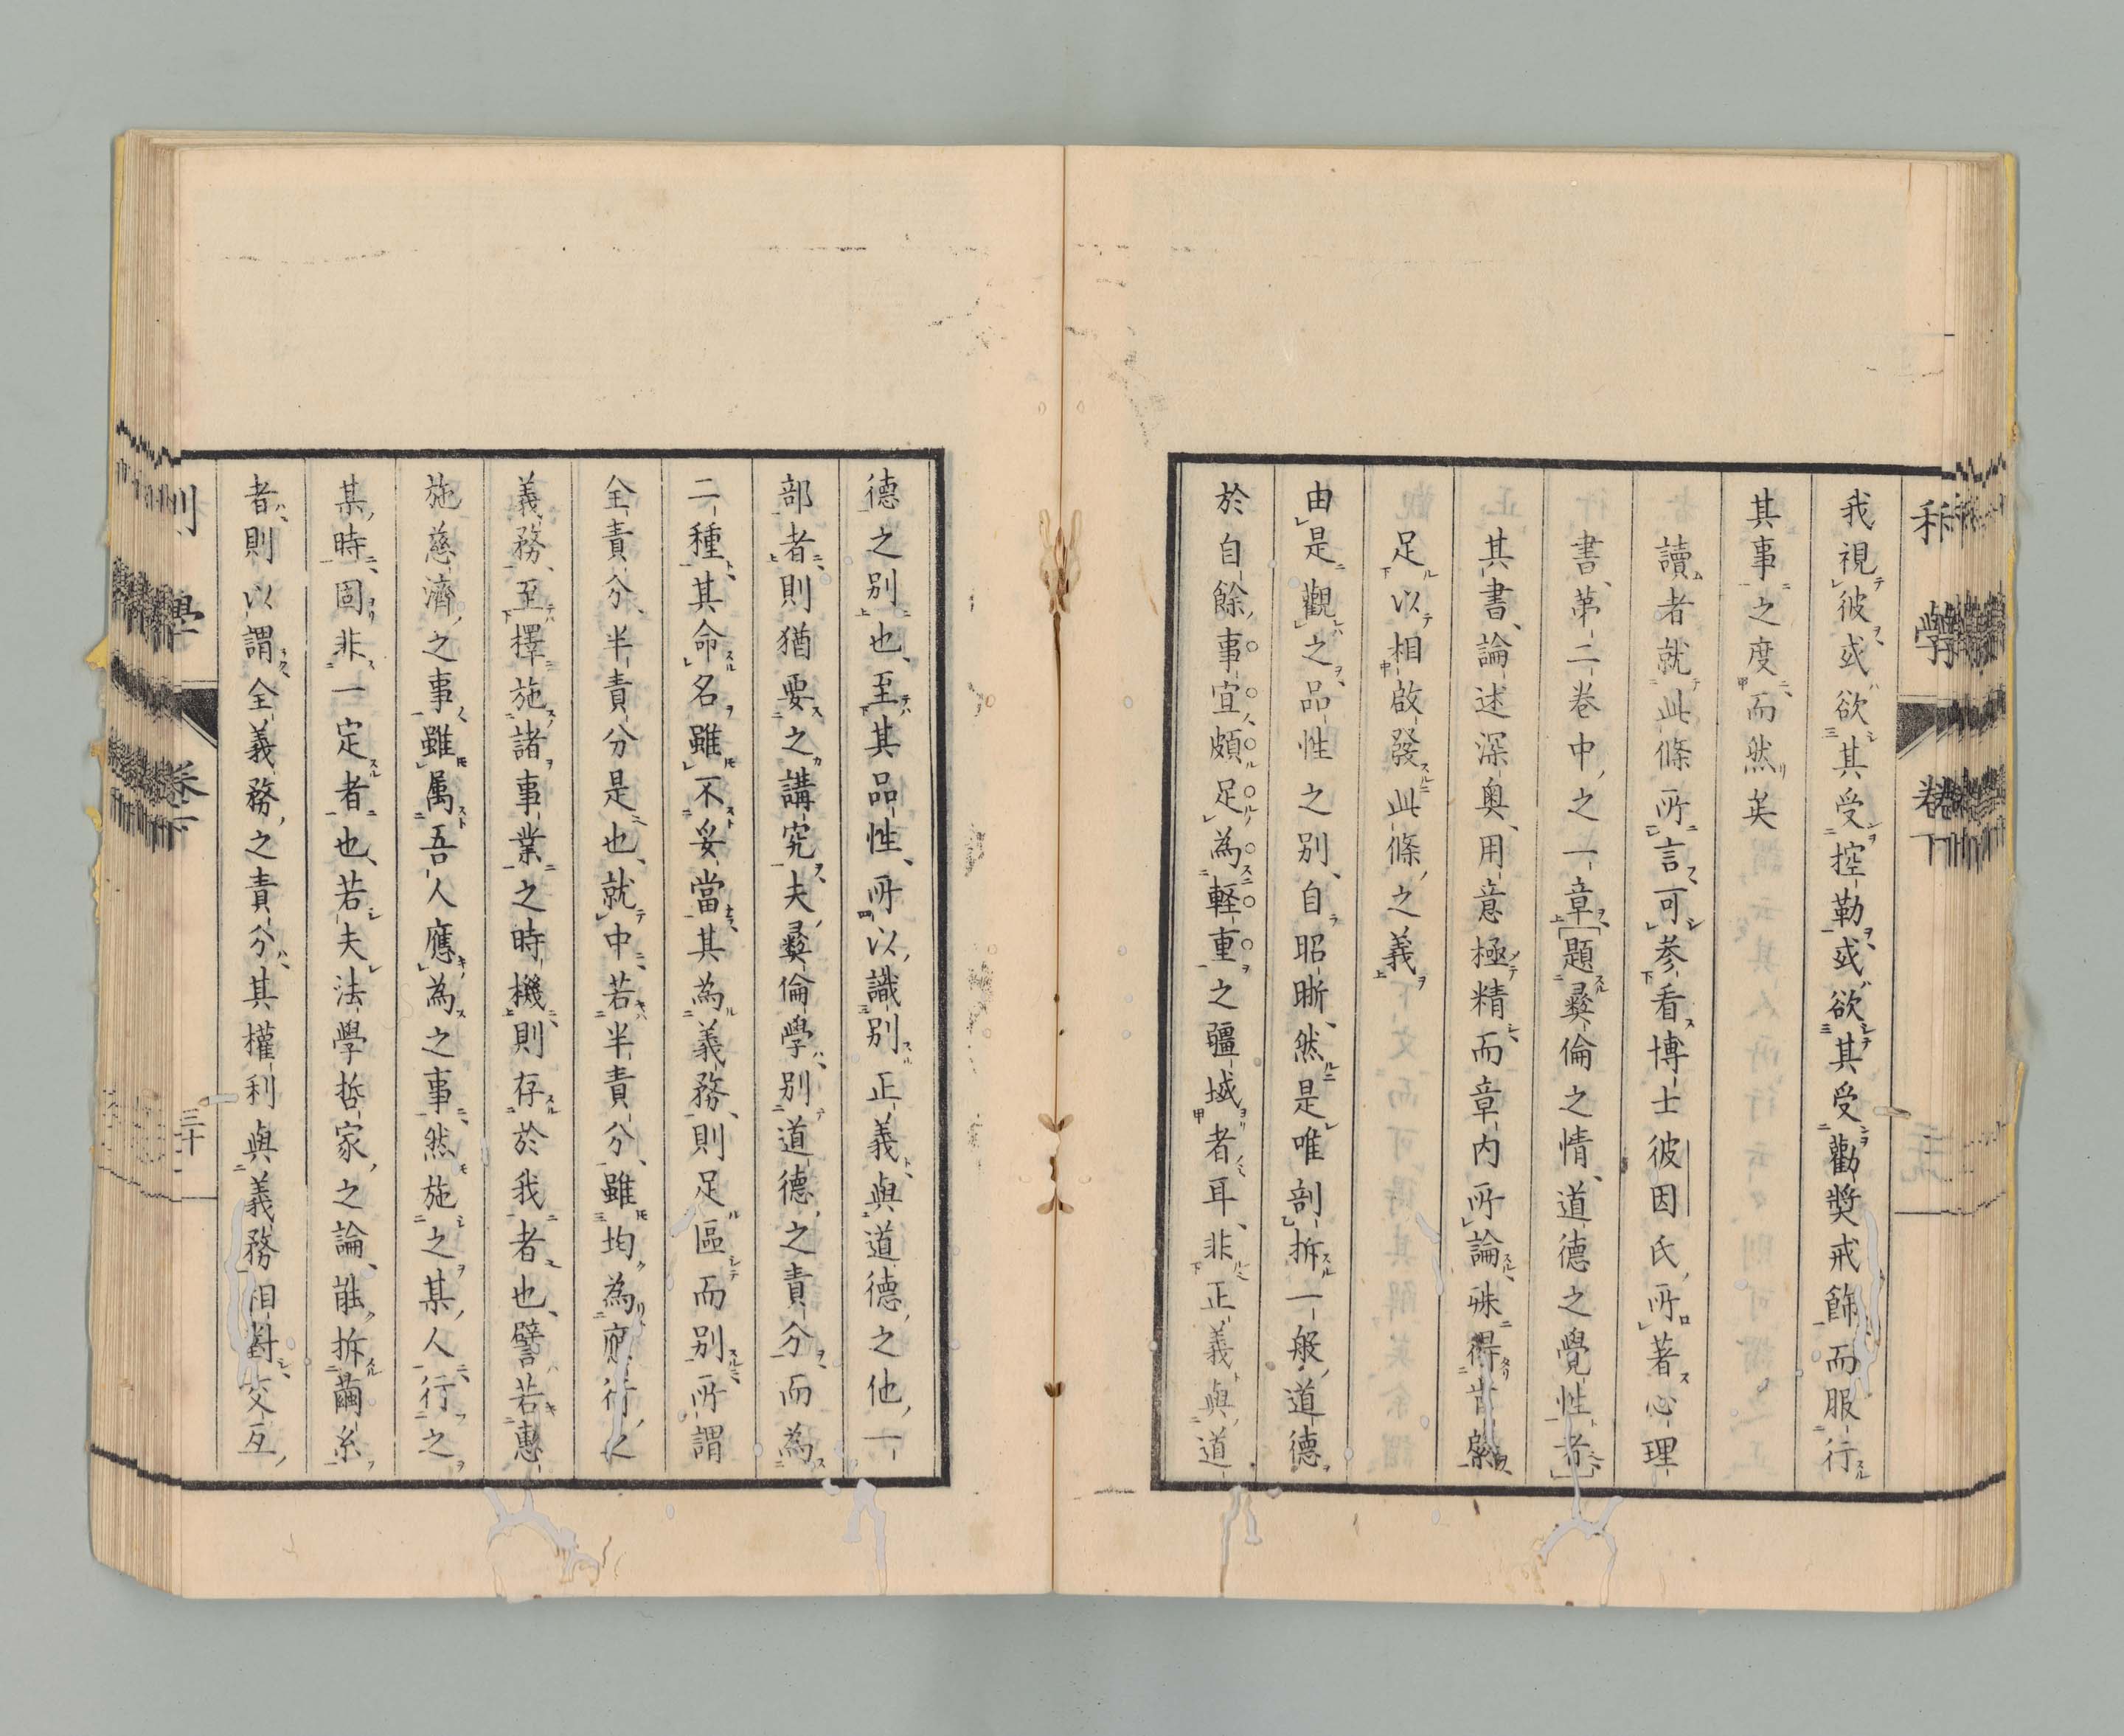 我視彼或欲其受控勒或欲其受勸獎戒飾而服行
其事之度而然矣
讀者就此條所言可參看博士彼因氏所著心理
書第二卷中之一章題彝倫之情道德之覺性者
其書論述深奧用意極精而章內所論殊得肯綮
足以相啟發此條之義
由是觀之品性之別自昭晰然是唯剖拆一般道德
於自餘事宜頗足為輕重之疆域者耳非正義與道
德之別也至其品性所以識別正義與道德之他一
部者則猶要之講究夫彝倫學別道德之責分而為
二種其命名雖不妥當其為義務則足區而別所謂
全責分半責分是也就中若半責分雖均為應行之
義務至擇施諸事業之時機則存於我者也譬若惠
施慈濟之事雖属吾人應為之事然施之某人行之
某時固非一定者也若夫法學哲家之論能拆繭糸
者則以謂全義務之責分其權利與義務相對交互
利學 卷下
三十